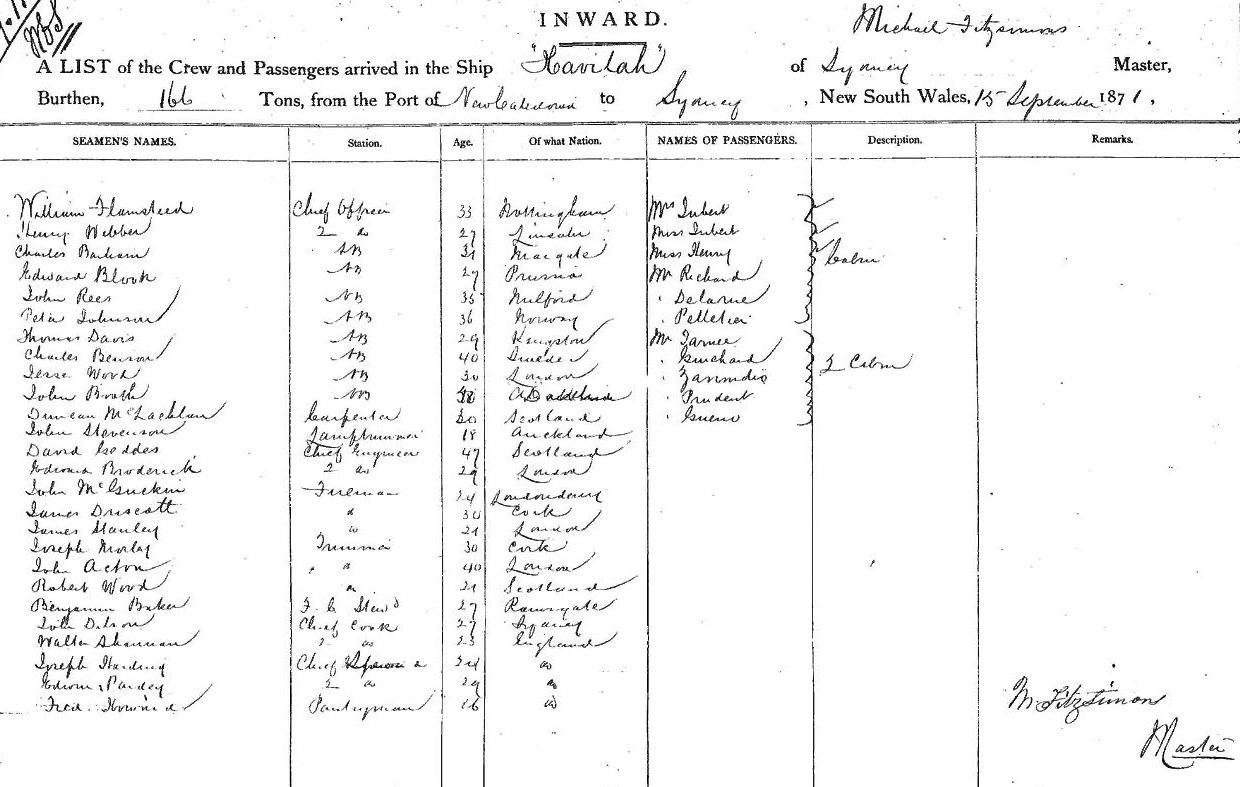 INWARD.
Michael Fitzsimons
A LIST of the Crew and Passengers arrived in the Ship "Havilah" of Sydney Master,
Burthen, 166 Tons, from the Port of New Caledonia to Sydney, New South Wales, 15 September 1871.
SEAMEN'S NAMES. Station. Age. Of what Nation. NAMES OF PASSENGERS. Description. Remarks.
William Flamsteed Chief Officer 33 Nottingham Mrs Imbert
Henry Webber 2 do 27 Lincoln Miss Imbert
Charles Barham AB Margate Miss Henry Cabin
Edward Blook AB 27 Prussia Mr Richard
John Rees AB 35 Milford " Delarue
Peter Johnson AB 36 Norway " Pelletier
Thomas Davis AB 29 Kingston Mr
Charles Benson AB 40 Sweden " Guichard 2 Cabin
Jesse Wood AB 30 London "
John Booth AB Adelaide " Prudent
Duncan McLachlan Carpenter 30 Scotland "
John Stevenson Lamptrimmer 18 Auckland
David Geddes Chief Engineer 47 Scotland
Edward Broderick 2 do 29 London
John McGuckin Fireman 24 Londonderry
James Driscott do 30 Cork
James Stanley do 21 London
Joseph Morley Trimmer 30 Cork
John Acton do 40 London
Robert Wood do 21 Scotland
Benjamin Baker F. C. Stewd 27 Ramsgate
John Dilson Chief Cook 27 Sydney
Walter Shannan 2 do 23 England
Joseph Harding Chief do
Edwin Pardey 2 do 29 do
Fred. Howard Pantryman 16 do
M Fitzsimon
Master